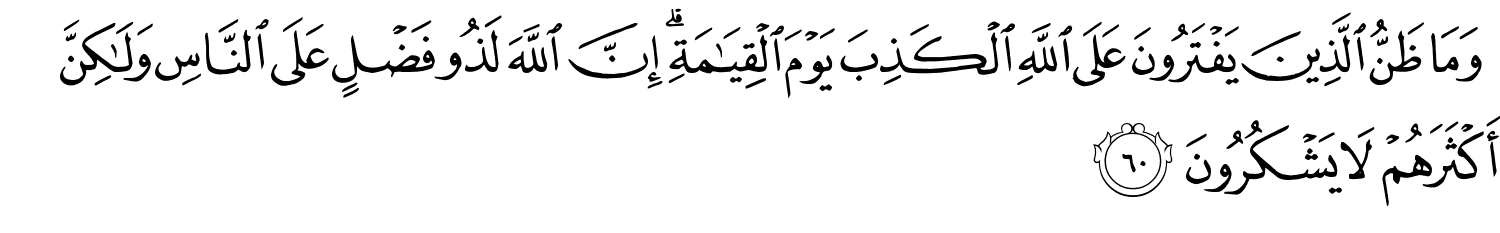 وَمَا ظَنُّ ٱلَّذِينَ يَفْتَرُونَ عَلَى ٱللَّهِ ٱلْكَذِبَ يَوْمَ ٱلْقِيَـٰمَةِ ۗ إِنَّ ٱللَّهَ لَذُو فَضْلٍ عَلَى ٱلنَّاسِ وَلَـٰكِنَّ
أَكْثَرَهُمْ لَا يَشْكُرُونَ ٦٠